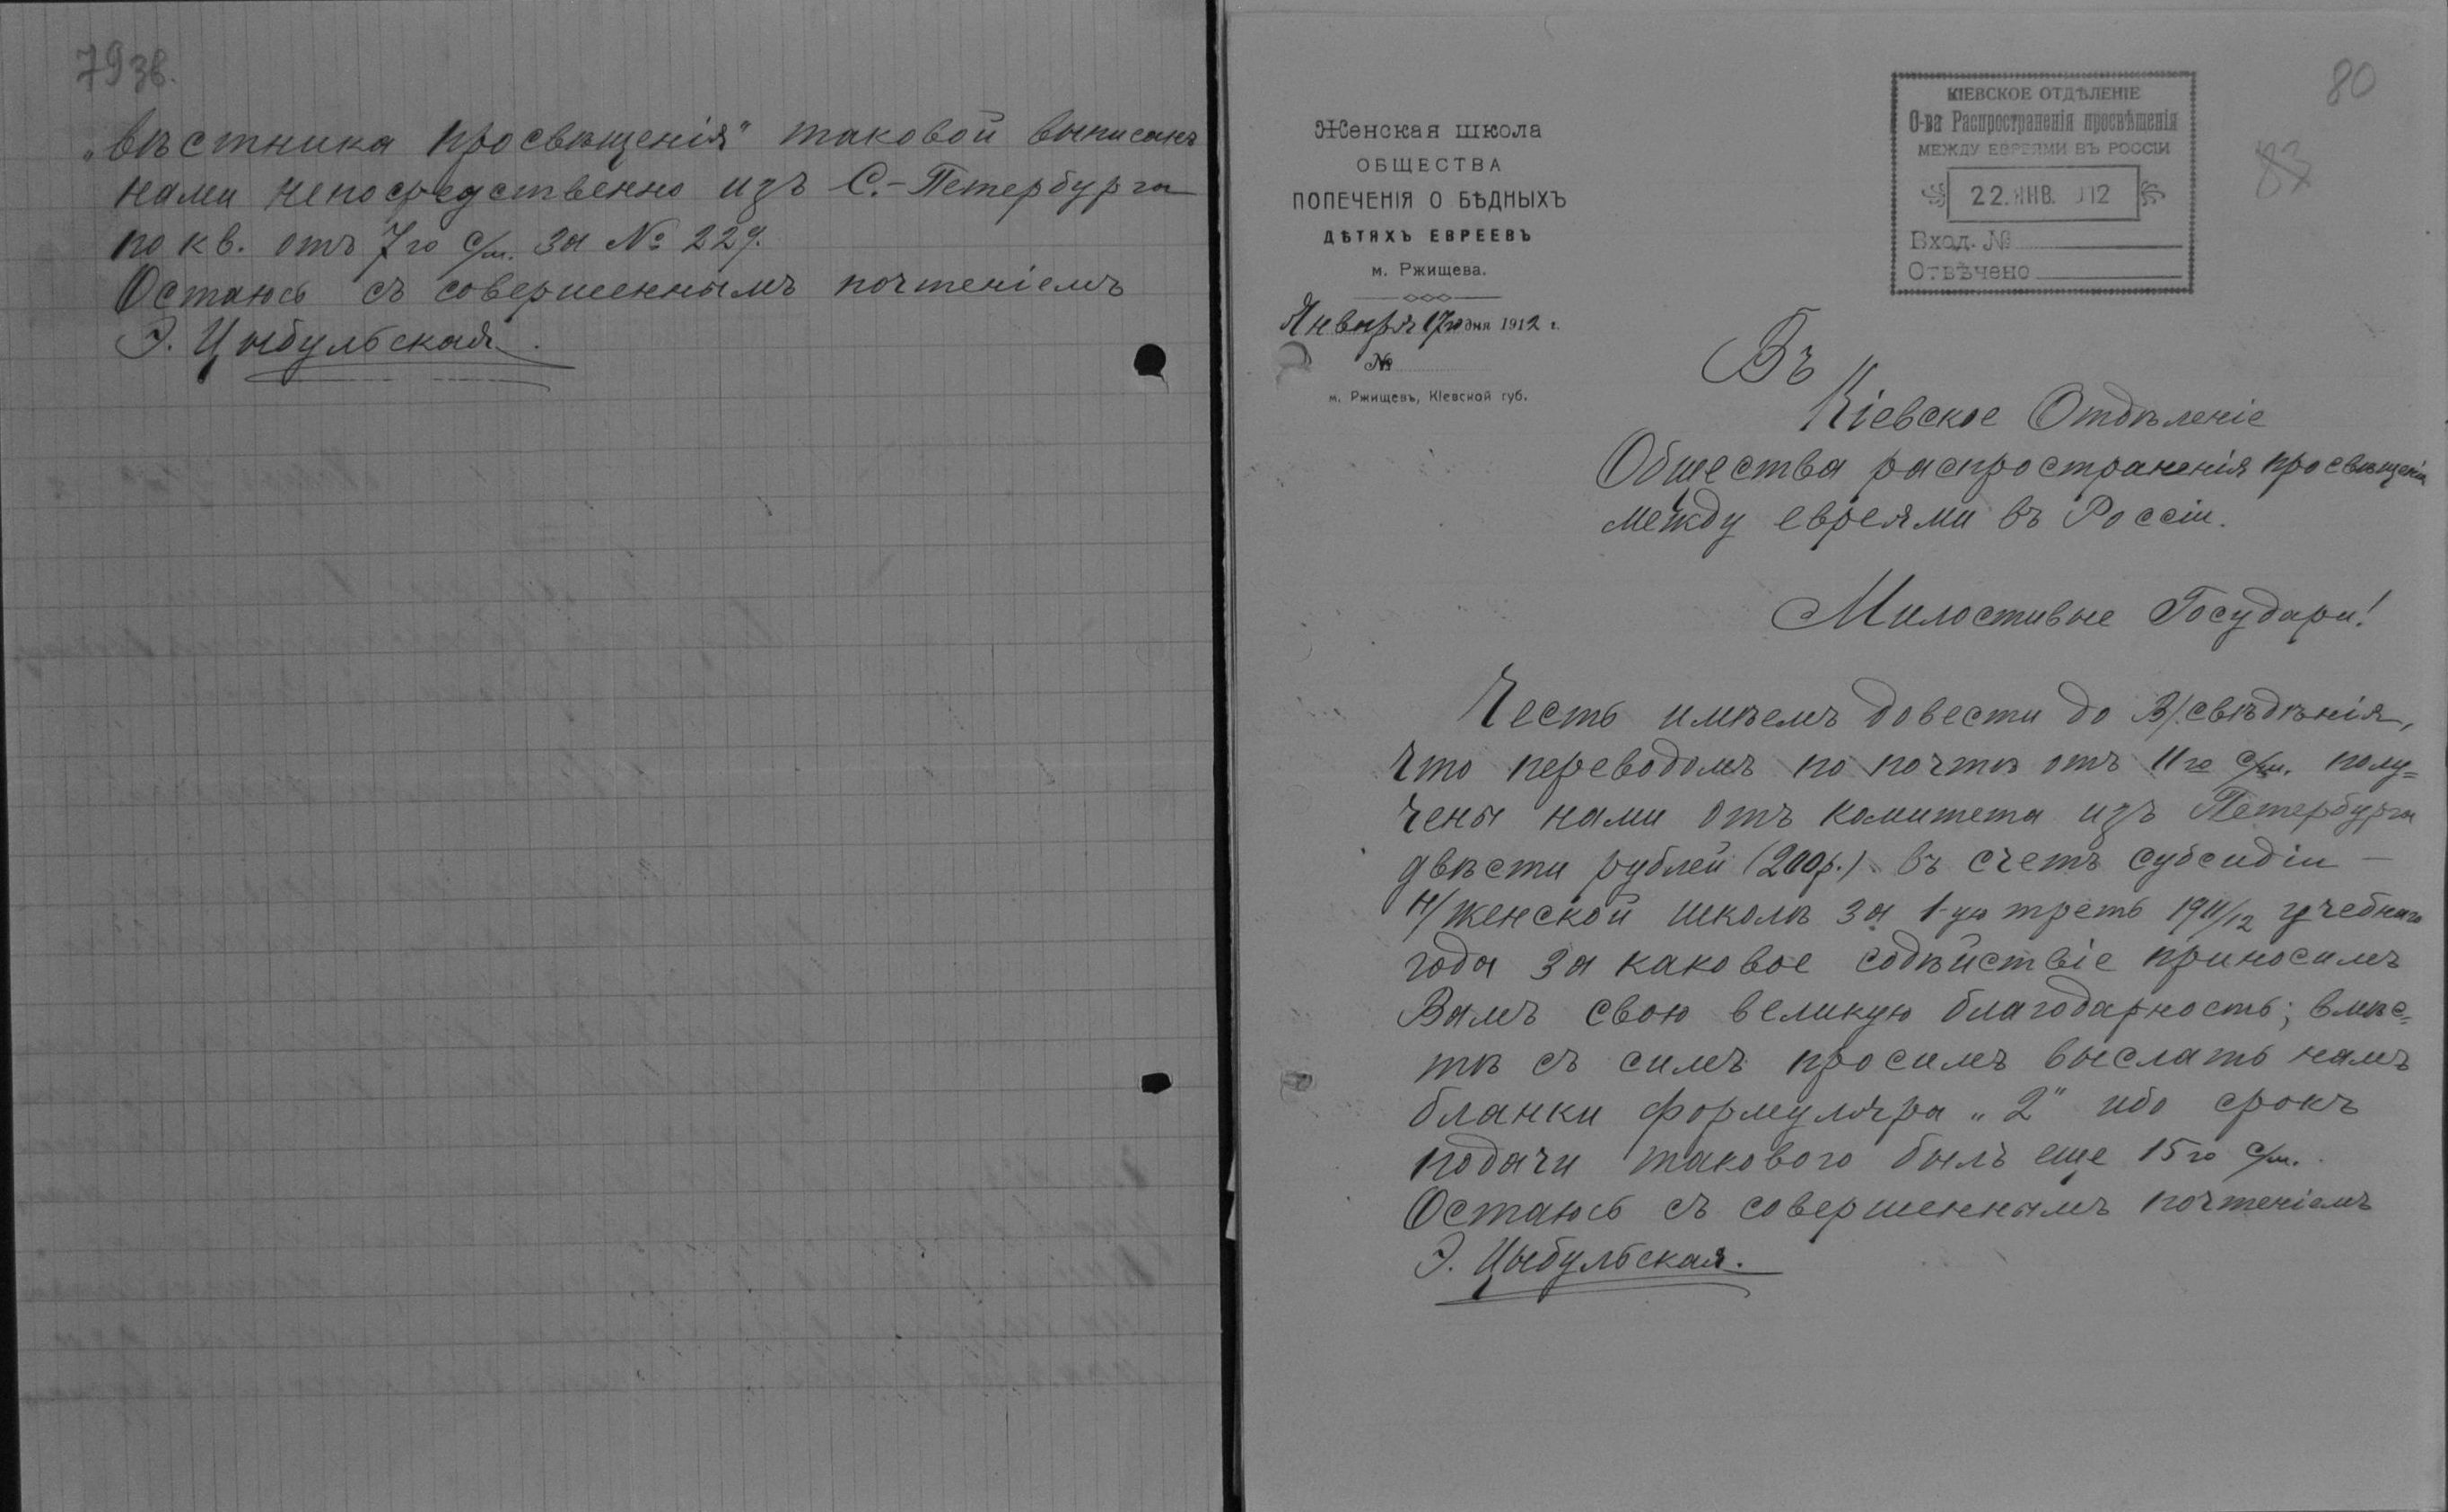 79зв.
„вѣстника просвѣщенія" таковой выписанъ
нами непосредственно изъ С.-Петербурга
по кв. отъ 7го с/м. за № 229.
Остаюсь съ совершеннымъ почтеніемъ
Э. Цыбульская.
80
83
КІЕВСКОЕ ОТДѢЛЕНІЕ
О-ва Распространенія просвѣщенія
МЕЖДУ ЕВРЕЯМИ ВЪ РОССІИ
22. ЯНВ. 912
Вход. №
Отвѣчено
Женская школа
ОБЩЕСТВА
ПОПЕЧЕНІЯ О БѢДНЫХЪ
ДѢТЯХЪ ЕВРЕЕВЪ
м. Ржищева.
Января 17го дня 1912 г.
№
м. Ржищевъ, Кіевской губ.
Въ
Кіевское Отдѣленіе
Общества распространенія просвѣщенія
между евреями въ Россіи.
Милостивые Государи!
Честь имѣемъ довести до В/.свѣдѣнія,
что переводомъ по почтѣ отъ 11го с/м. полу=
чены нами отъ комитета изъ Петербурга
двѣсти рублей (200р.) въ счетъ субсидіи –
н/женской школѣ за 1-ую треть 1911/12 учебнаго
года за каковое содѣйствіе приносимъ
Вамъ свою великую благодарность; вмѣс=
тѣ съ симъ просимъ выслать намъ
бланки формуляра „2" ибо срокъ
подачи такового былъ еще 15го с/м.
Остаюсь съ совершеннымъ почтеніемъ
Э. Цыбульская.